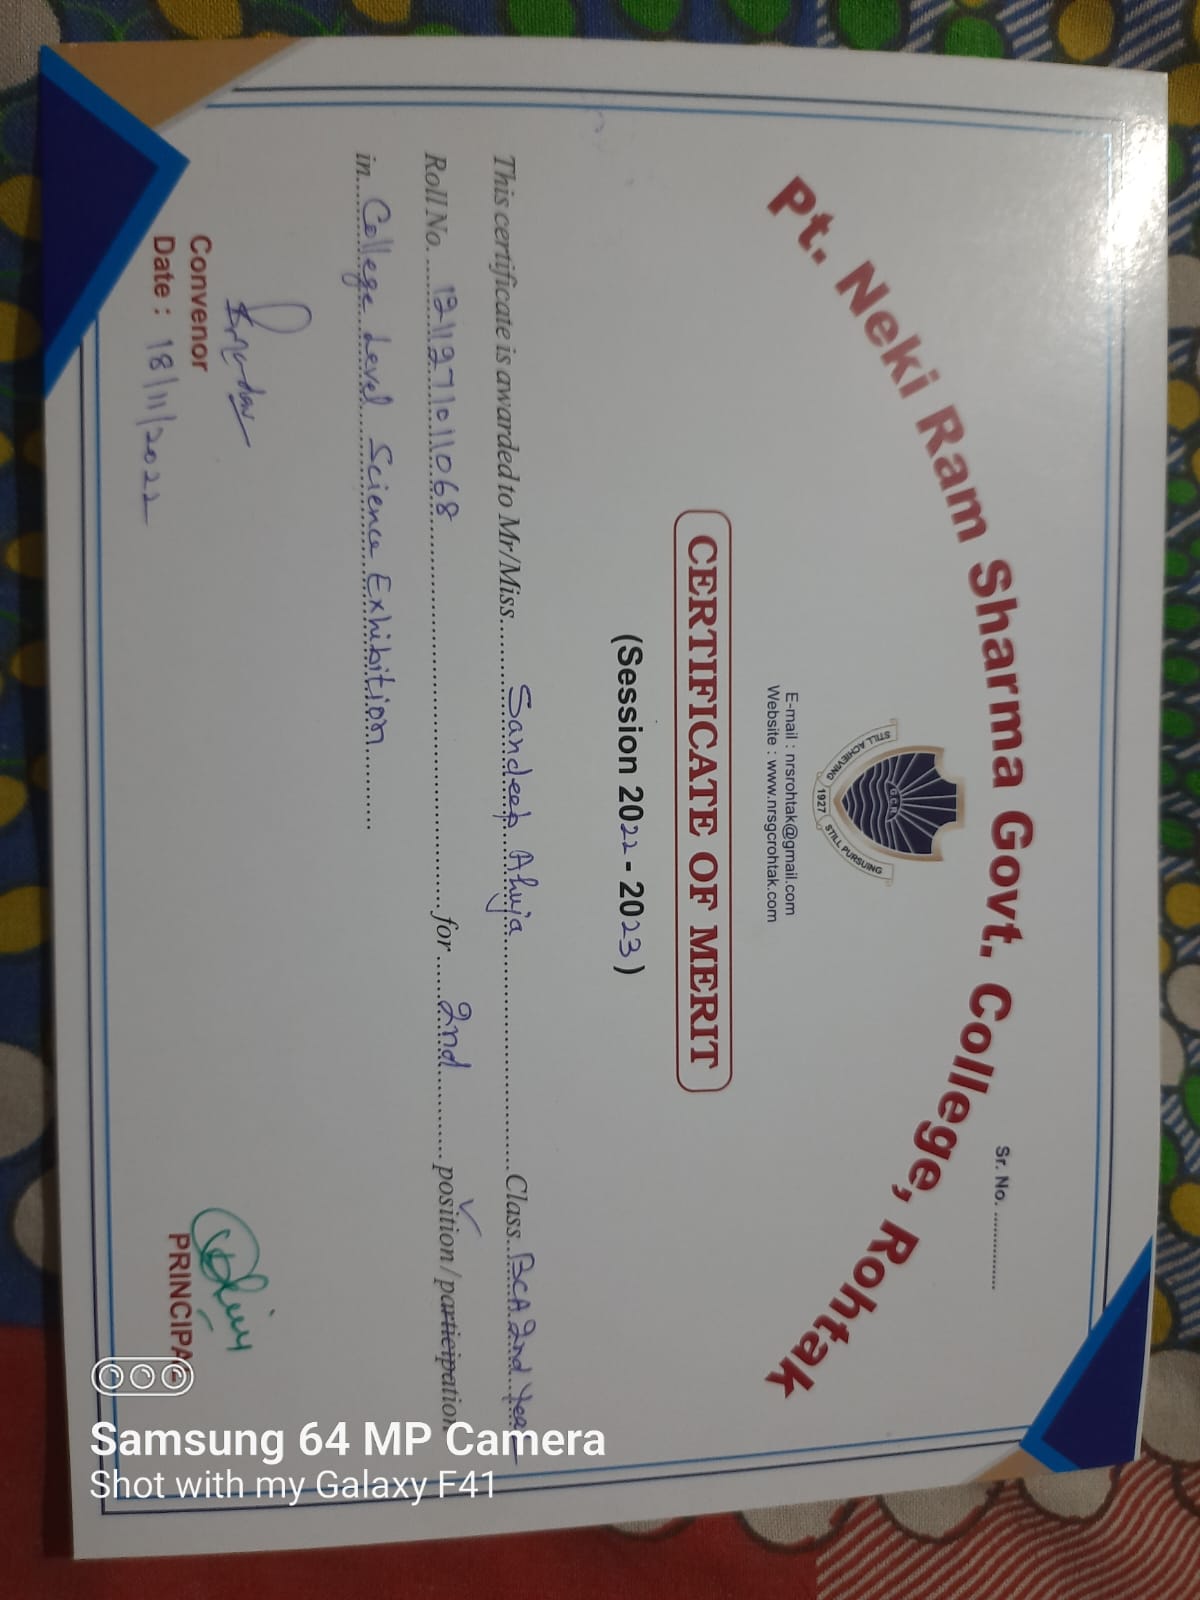 Sr. No. ..............
Pt. Neki Ram Sharma Govt. College, Rohtak
GCR
STILL ACHIEVING 1927 STILL PURSUING
E-mail : nrsrohtak@gmail.com
Website : www.nrsgcrohtak.com
CERTIFICATE OF MERIT
(Session 2022 - 2023)
This certificate is awarded to Mr/Miss........Sandeep Ahuja........Class..BCA 2nd Year
Roll No....1211271011068........for......2nd........position / participation
in....College Level Science Exhibition..........
Convenor
PRINCIPAL
Date : 18/11/2022
Samsung 64 MP Camera
Shot with my Galaxy F41